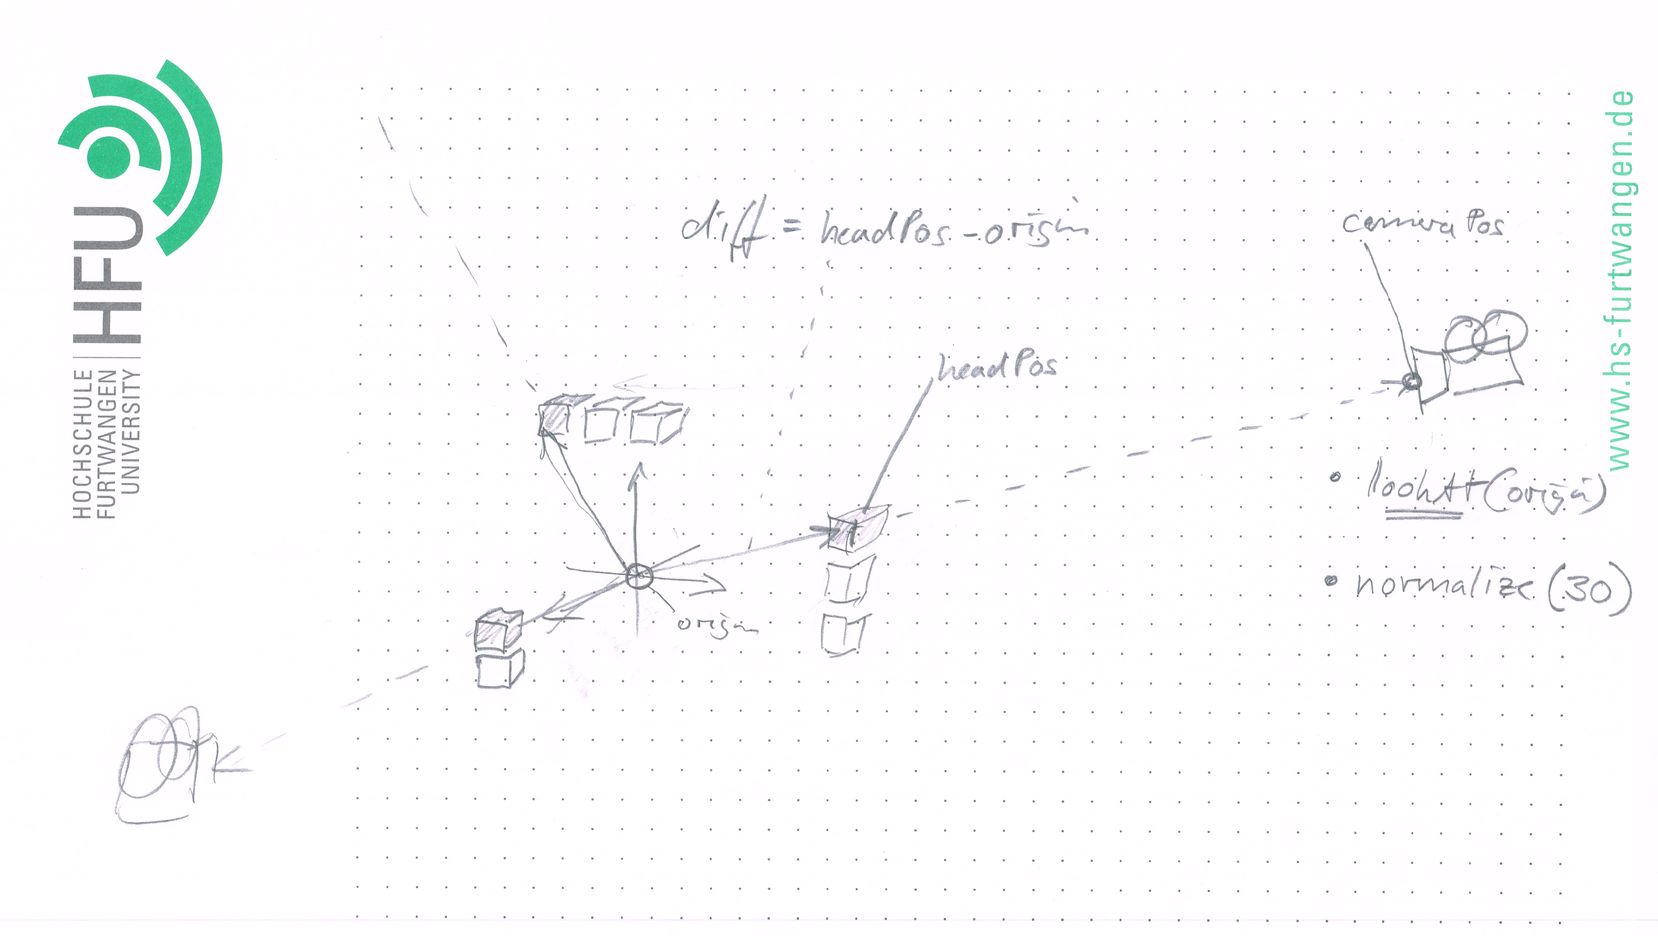 HFU
HOCHSCHULE
FURTWANGEN
UNIVERSITY
diff = headPos - origin
cameraPos
headPos
origin
• lookAt (origin)
• normalize (30)
www.hs-furtwangen.de